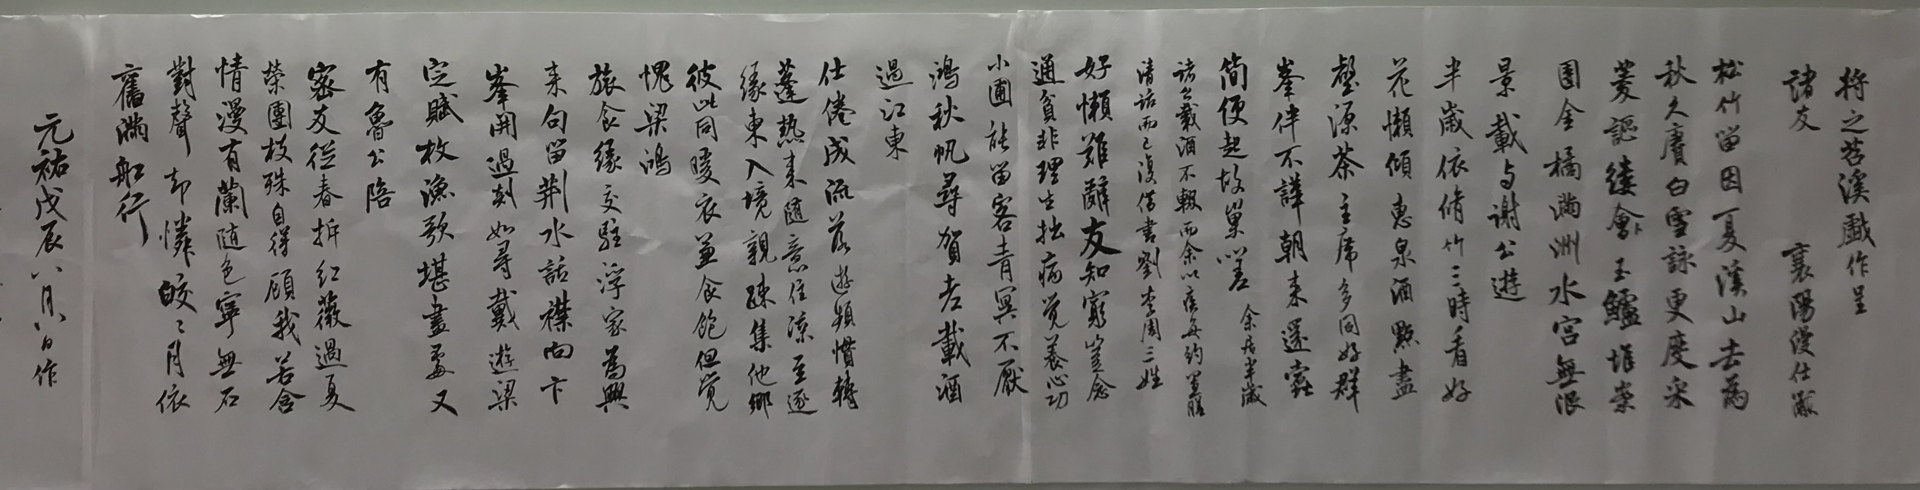 將之苕溪戲作呈
諸友 襄陽漫仕黻
松竹留因夏溪山去為
秋久賡白雪詠更度采
菱謳縷會玉鱸堆案
團金橘滿洲水宮無限
景載與謝公遊
半歲依脩竹三時看好
花懶傾惠泉酒點盡
壑源茶主席多同好群
峯伴不譁朝來還蠹
簡便起故巢嗟 余居半歲
諸公載酒不輟而余以疾每約置膳
清話而已復借書劉李周三姓
好懶難辭友知窮豈念
通貧非理生拙病覺養心功
小圃能留客青冥不厭
鴻秋帆尋賀老載酒
過江東
仕倦成流落遊頻慣轉
蓬熱來隨意住涼至逐
緣東入境親疎集他鄉
彼此同暖衣兼食飽但覺
愧梁鴻
旅食緣交駐浮家為興
來句留荆水話襟向卞
峯開過剡如尋戴遊梁
定賦枚漁歌堪畫處又
有魯公陪
密友從春拆紅薇過夏
榮團枝殊自得顧我若含
情漫有蘭隨色寧無石
對聲却憐皎〻月依
舊滿舡行
元祐戊辰八月八日作